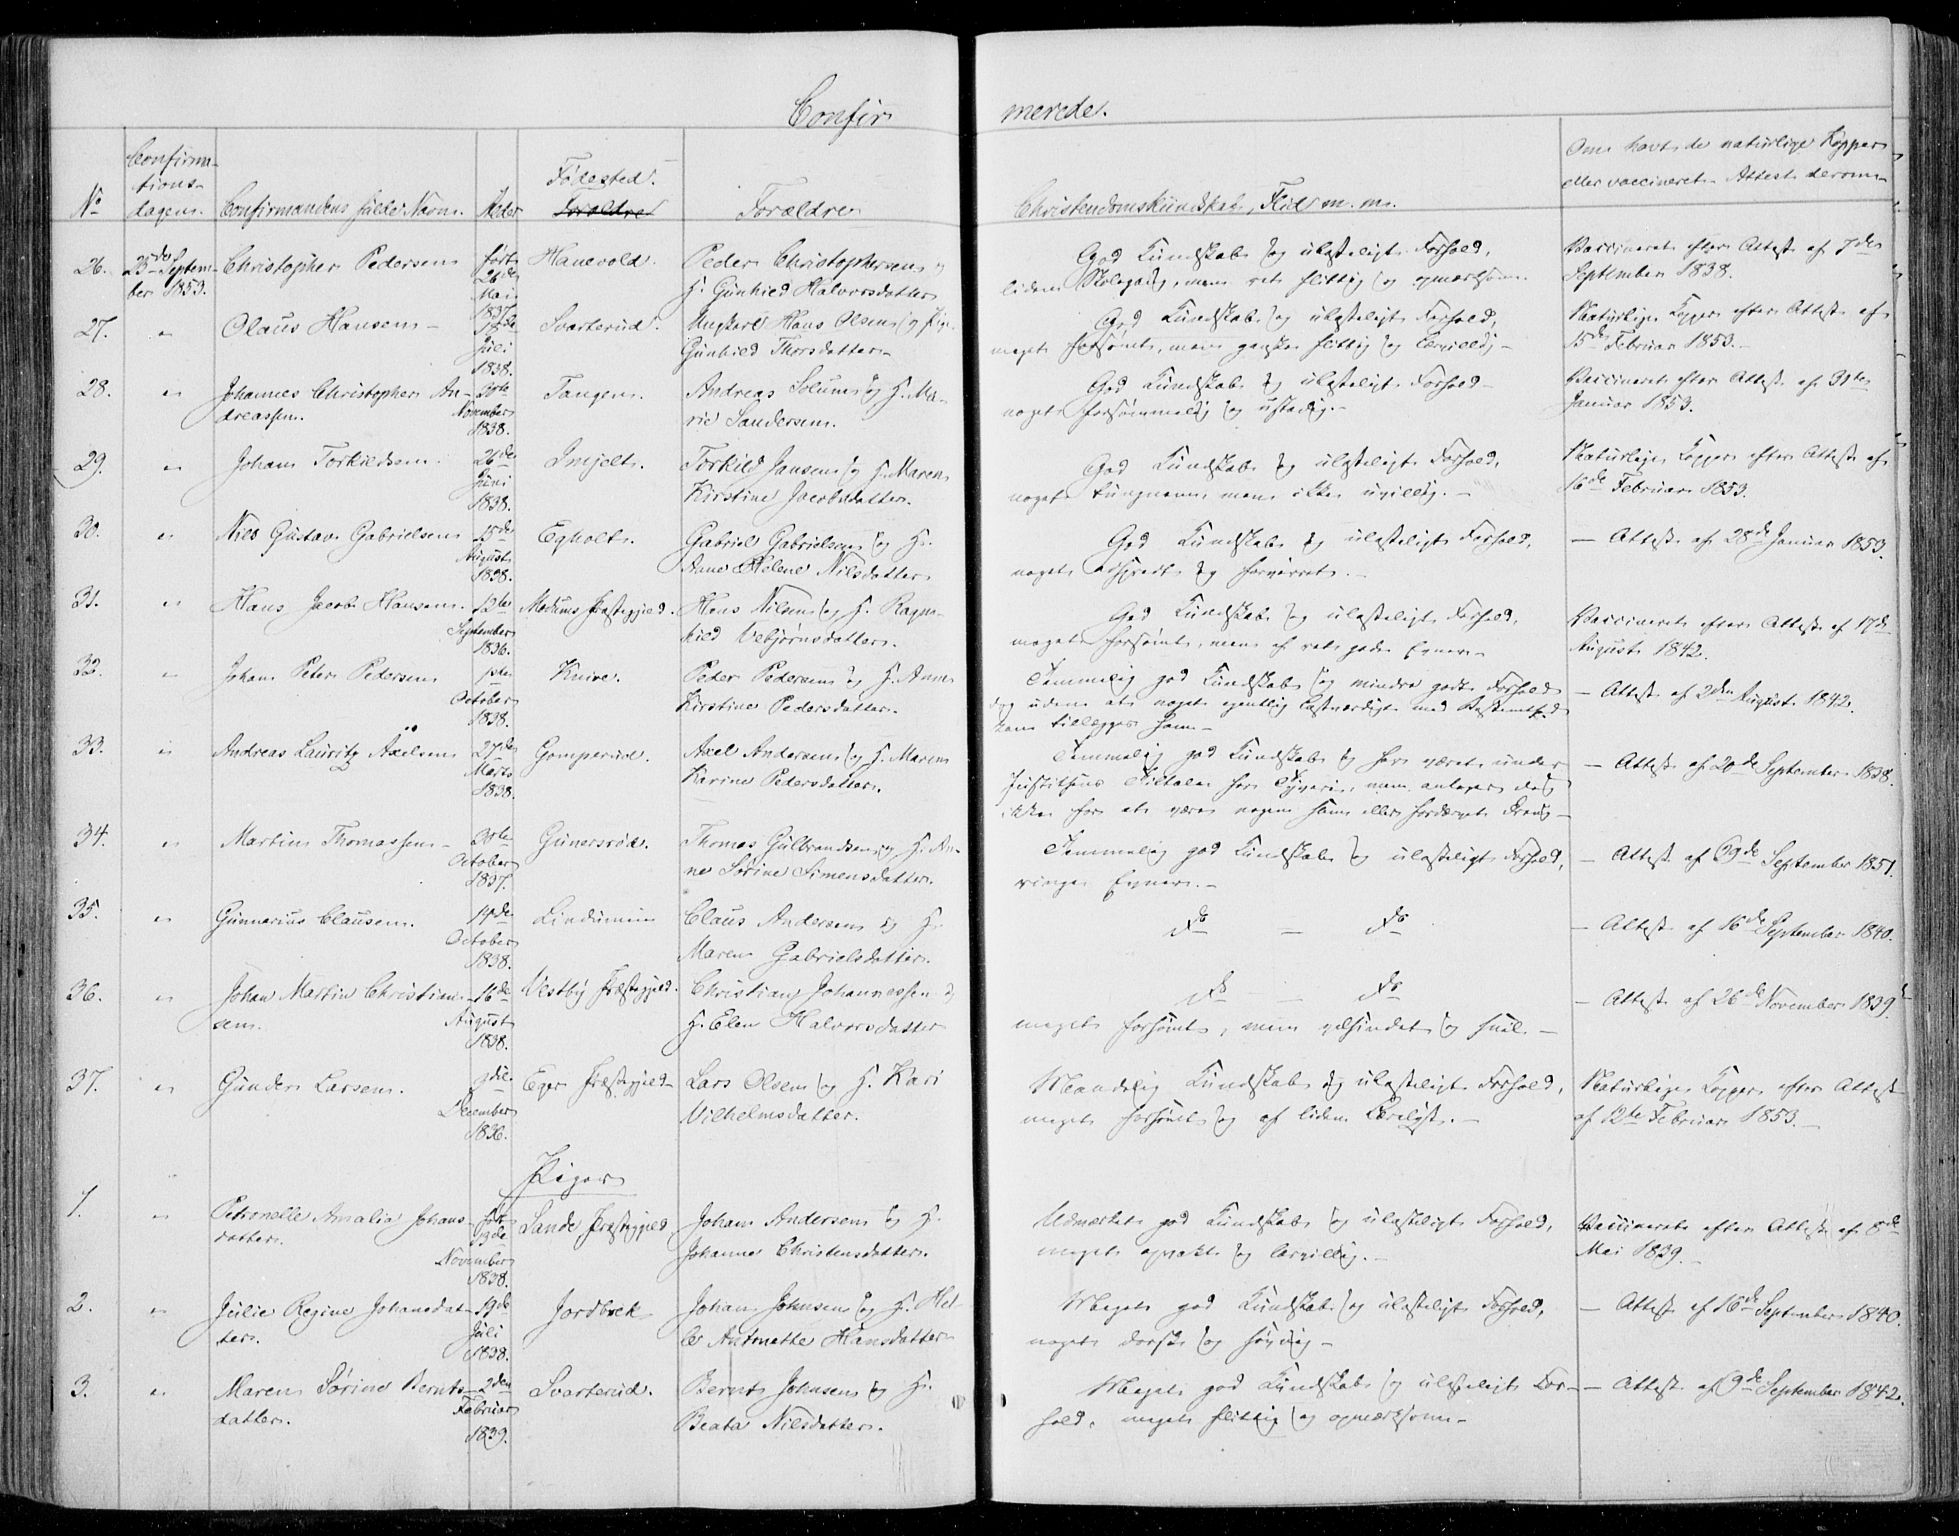 Confir
merede.
No
Confirma-
tions-
dagen.
Confirmandens fulde Navn.
Alder
Fødested.
Forældre
Forældre
Christendomskundskab, Flid m. m.
Om havt de naturlige Kopper
eller vaccineret. Attest derom
26. 25de Septem- Christopher Pedersen født Hanevold. Peder Christophersen og God Kundskab og ulasteligt Forhold, Vaccineret efter Attest af 7de
ber 1853. 26de Mai 1837. H. Gunhild Halvorsdatter liden Skolegang, men ret flittig og opmærksom. September 1838.
27. " Olaus Hansen – Juli 1838. Svarterud. Ungkarl Hans Olsen og Pige God Kundskab og ulasteligt Forhold, Naturlige Kopper efter Attest af
Gunhild Thorsdatter meget forsømt, men ganske flittig og lærvillig – 15de Februar 1853.
28. " Johannes Christopher An- 30te Tangen. Andreas Solum og H. Ma- God Kundskab og ulasteligt Forhold – Vaccineret efter Attest af 31te
dreassen. November 1838. rie Sandersen. noget forsømmelig og ustadig. – Januar 1853.
29. " Johan Torkildsen. 26de Juni 1838. Imjelt. Torkild Jansen og H. Maren God Kundskab og ulasteligt Forhold, Naturlige Kopper efter Attest af
Kirstine Jacobsdatter. noget tungnem men ikke uvillig. – 16de Februar 1853.
30. " Nils Gustav Gabrielsen 15de August 1838. Egholt. Gabriel Gabrielsen og H. God Kundskab og ulasteligt Forhold, – Attest af 28de Januar 1853.
Anne Helene Nilsdatter. noget adspredt og forvirret. –
31. " Hans Jacob Hansen. 12te September 1836. Modums Præstegjeld. Hans Nilsen og H. Ragn- God Kundskab og ulasteligt Forhold, Vaccineret efter Attest af 17de
hild Vebjørnsdatter. meget forsømt, men af ret gode Evner – August 1842.
32. " Johan Peter Pedersen 1ste October 1838. Knive. Peter Pedersen og H. Anne Temmelig god Kundskab og mindre godt Forhold – Attest af 2den August 1842.
Kirstine Pedersdatter. dog uden at noget egentlig lastværdigt med Bestemthed
kan tillægges ham –
33. " Andreas Lauritz Axelsen 27de Marts 1838. Gomperud. Axel Andersen og H. Maren Temmelig god Kundskab og har været under – Attest af 20de September 1838.
Karine Pedersdatter. Justitsens Tiltale for Tyveri, men antages dog
ikke for at være nogen slem eller fordærvet Dreng –
34. " Martin Thomassen – 30te October 1837. Gunersrød. Thomas Gulbrandsen og H. An- Temmelig god Kundskab og ulasteligt Forhold, – Attest af 9de September 1851.
ne Sørine Simensdatter. ringe Evner. –
35. " Gunnerius Clausen. 14de October 1838. Lindumnie Claus Andersen og H. Do – Do – Attest af 16de September 1840.
Maren Gabrielsdatter.
36. " Johan Martin Christian- 16de August 1838. Vestby Præstegjeld. Christian Johannessen og Do – Do – Attest af 26de November 1839.
sen. H. Elen Halvorsdatter meget forsømt, men velsindet og snil. –
37. " Gunder Larsen. 9die December 1836. Eger Præstegjeld Lars Olsen og H. Kari Maadelig Kundskab og ulasteligt Forhold, Naturlige Kopper efter Attest
Vilhelmsdatter. meget forsømt og af liden Lærelyst. – af 12te Februar 1853. –
Piger
1. " Petronelle Amalia Johans- født 19de November 1838. Sande Præstegjeld Johan Andersen og H. Udmærket god Kundskab og ulasteligt Forhold, Vaccineret efter Attest af 8de
datter. Johanne Christensdatter. meget opvakt og lærvillig. – Mai 1839. –
2. " Julie Regine Johansdat- 19de Juli 1838. Jordbrek Johan Johnsen og H. Hel- Meget god Kundskab og ulasteligt Forhold, – Attest af 16de September 1840.
ter. le Antonette Hansdatter noget dorsk og –
3. " Maren Sørine Bernts- 2den Februar 1839. Svarterud. Bernt Johnsen og H. Meget god Kundskab og ulasteligt For- – Attest af 9de September 1842.
datter. Beata Nilsdatter. hold, meget flittig og opmærksom –